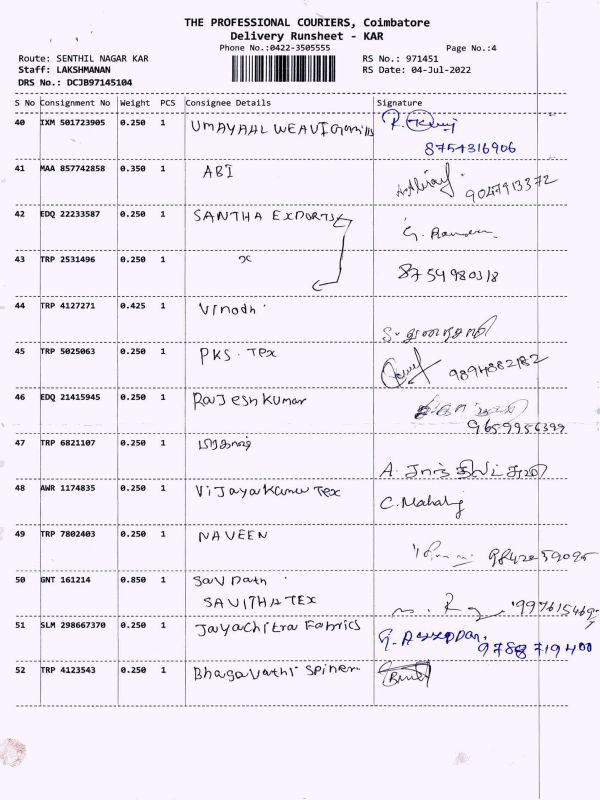 THE PROFESSIONAL COURIERS, Coimbatore
Delivery Runsheet - KAR
Phone No.:0422-3505555 Page No.:4
Route: SENTHIL NAGAR KAR RS No.: 971451
Staff: LAKSHMANAN RS Date: 04-Jul-2022
DRS No.: DCJB97145104
S No Consignment No Weight PCS Consignee Details Signature
40 IXM 501723905 0.250 1 UMAYAAL
8754316906
41 MAA 857742858 0.350 1 ABI 9047913372
42 EDQ 22233587 0.250 1 SANTHA EXPORTS
43 TRP 2531496 0.250 1 8754980318
44 TRP 4127271 0.425 1 Vinodh
45 TRP 5025063 0.250 1 PKS. Tex 9894882182
46 EDQ 21415945 0.250 1 RaJesh Kumar
9659956399
47 TRP 6821107 0.250 1
48 AWR 1174835 0.250 1 ViJayaKumar Tex C.Mahalg
49 TRP 7802403 0.250 1 NAVEEN
50 GNT 161214 0.850 1
SAVITHA TEX
51 SLM 298667370 0.250 1 JayaChitra Fabrics G.
9788719400
52 TRP 4123543 0.250 1 Bhagavathi Spiner